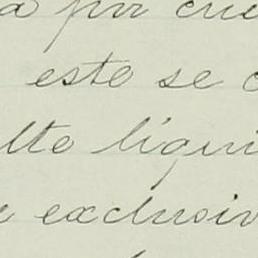 a por cue
este se c
lte liqui
e exclusiv